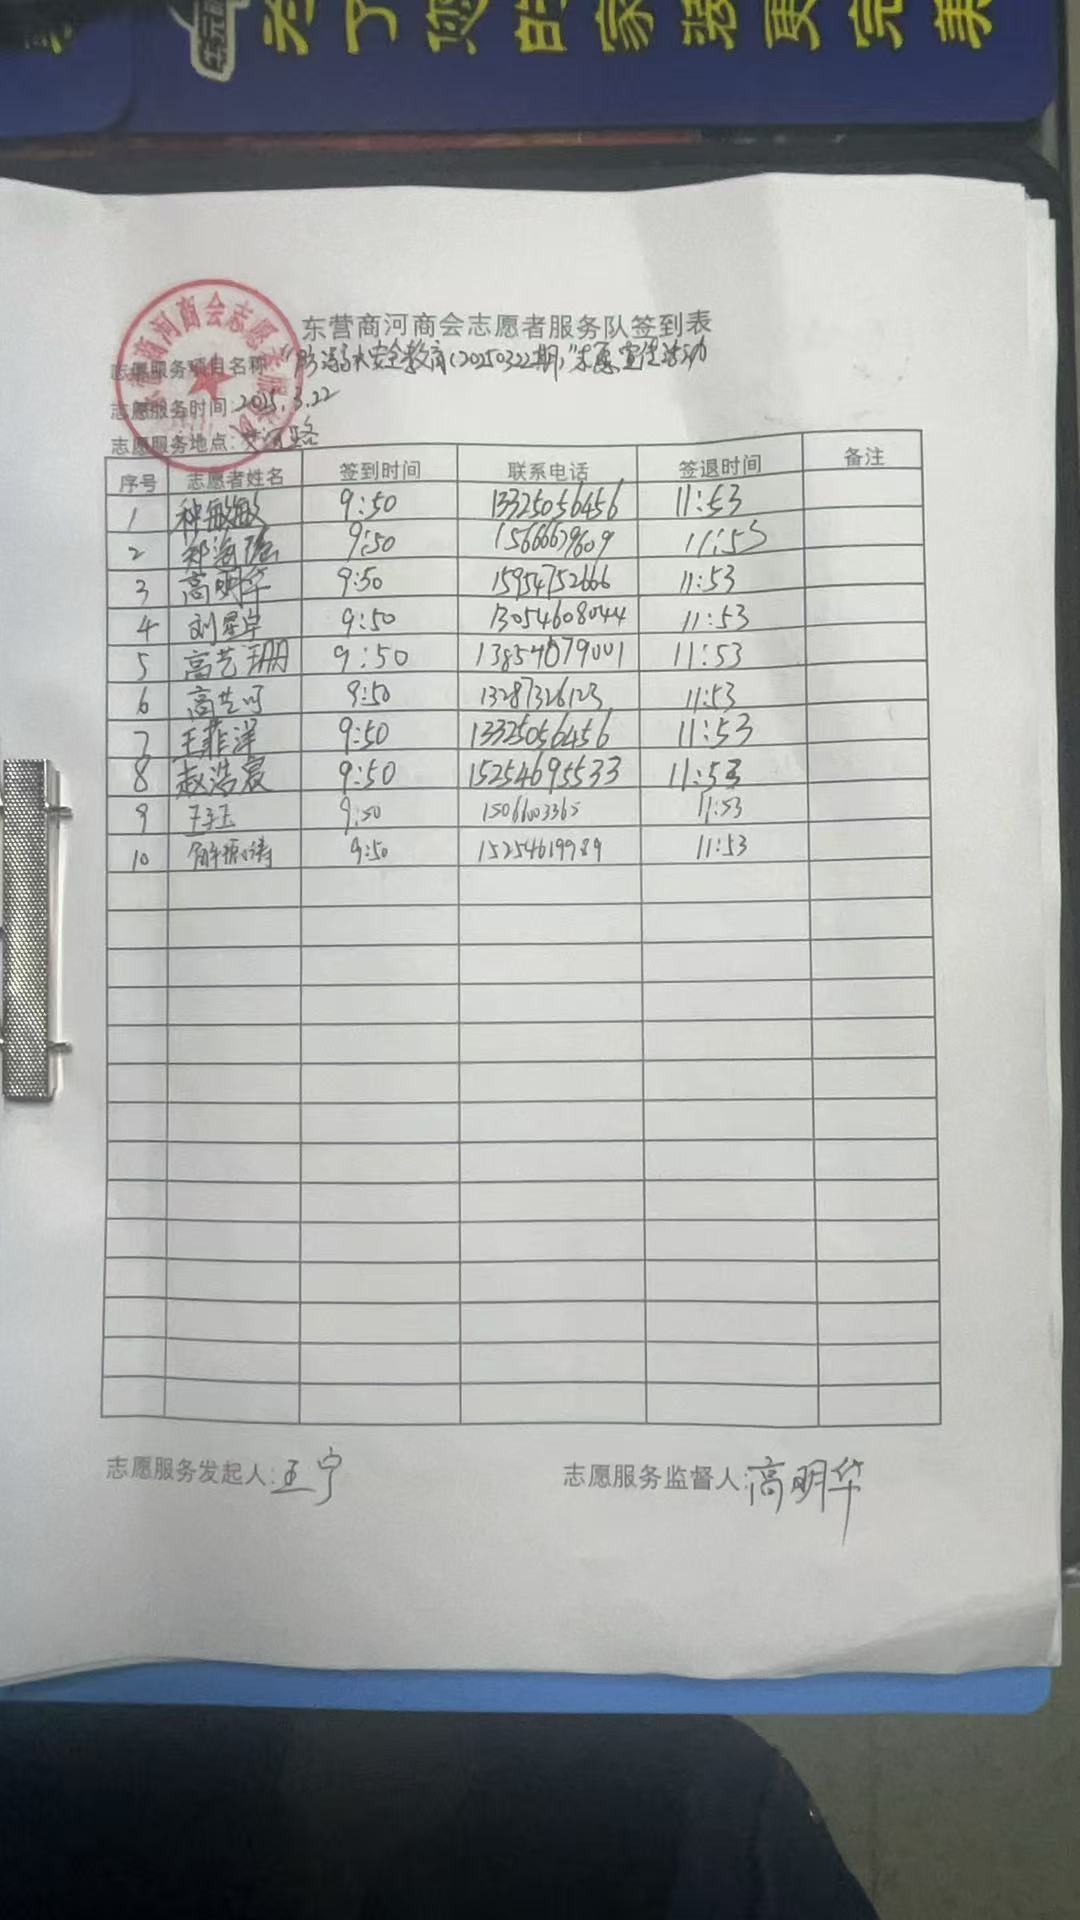 为了您的家游更完美
东营商河商会志愿者服务队签到表
志愿服务项目名称"防溺水安全教育(20250322期)"志愿宣传活动
志愿服务时间:2025.3.22
志愿服务地点: 路
序号 志愿者姓名 签到时间 联系电话 签退时间 备注
1 种敏敏 9:50 13325056456 11:53
2 郑海 9:50 15666679609 11:53
3 高明华 9:50 15954752666 11:53
4 刘星卓 9:50 13054608044 11:53
5 高艺珊 9:50 13854679001 11:53
6 高艺可 9:50 13287326123 11:53
7 王菲洋 9:50 13325056456 11:53
8 赵浩宸 9:50 15254695533 11:53
9 王玉 9:50 1506603365 11:53
10 9:50 15254619989 11:53
志愿服务发起人:王宁
志愿服务监督人:高明华
商河商会志愿者服务队